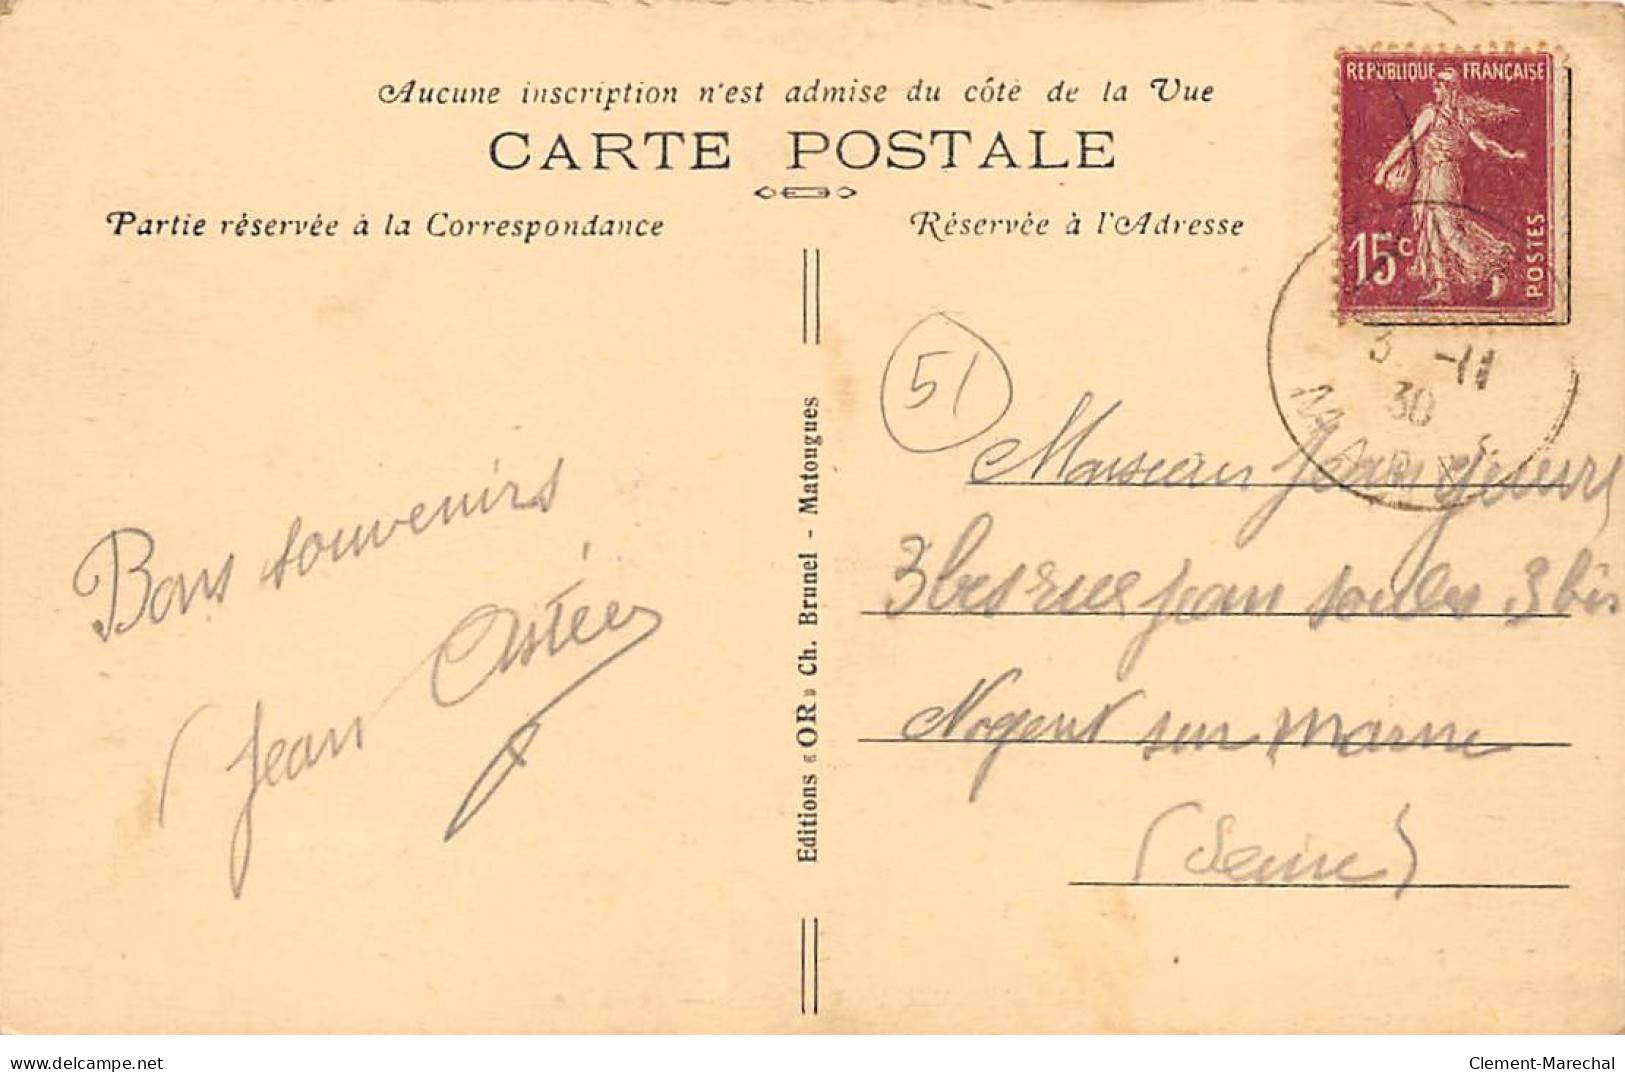 Aucune inscription n'est admise du côté de la Vue
CARTE POSTALE
Partie réservée à la Correspondance
Réservée à l'Adresse
REPUBLIQUE FRANÇAISE
15c
POSTES
3 -11
30
MARNE
51
Bons souvenirs
Jean
Editions « OR » Ch. Brunel - Matougues
Monsieur Jean
3 bis rue Jean 3 bis
Nogent sur marne
(Seine)
delcampe.net
Clement-Marechal